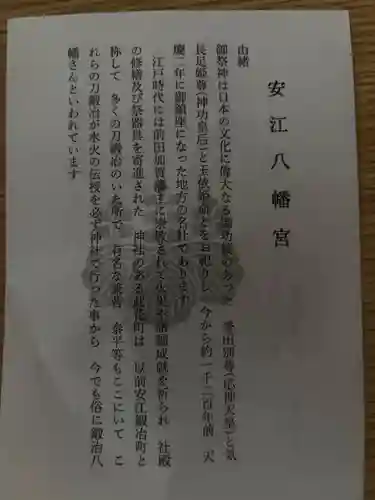 安江八幡宮
由緒
御祭神は日本の文化に偉大なる御功績のあった 誉田別尊(応神天皇)と気
長足姫尊(神功皇后)と玉依姫命とをお祀りし 今から約一千二百年前 天
慶二年に御鎮座になった地方の名社であります
江戸時代には前田加賀藩主に崇敬されて 諸願成就を祈られ 社殿
の修繕及び祭器具を寄進された 神社のある此花町は 以前安江鍛冶町と
称して 多くの刀鍛冶のいた所で 有名な兼若 泰平等もここにいて こ
れらの刀鍛冶が水火の伝授を必ず神社で行った事から 今でも俗に鍛冶八
幡さんといわれています